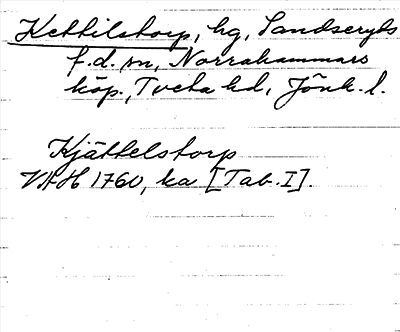 Kettilstorp, hg, Sandseryds
f.d. sn, Norrahammars
köp., Tveta hd, Jönk. l.
Kjättelstorp
VAH 1760, ka [Tab. I].